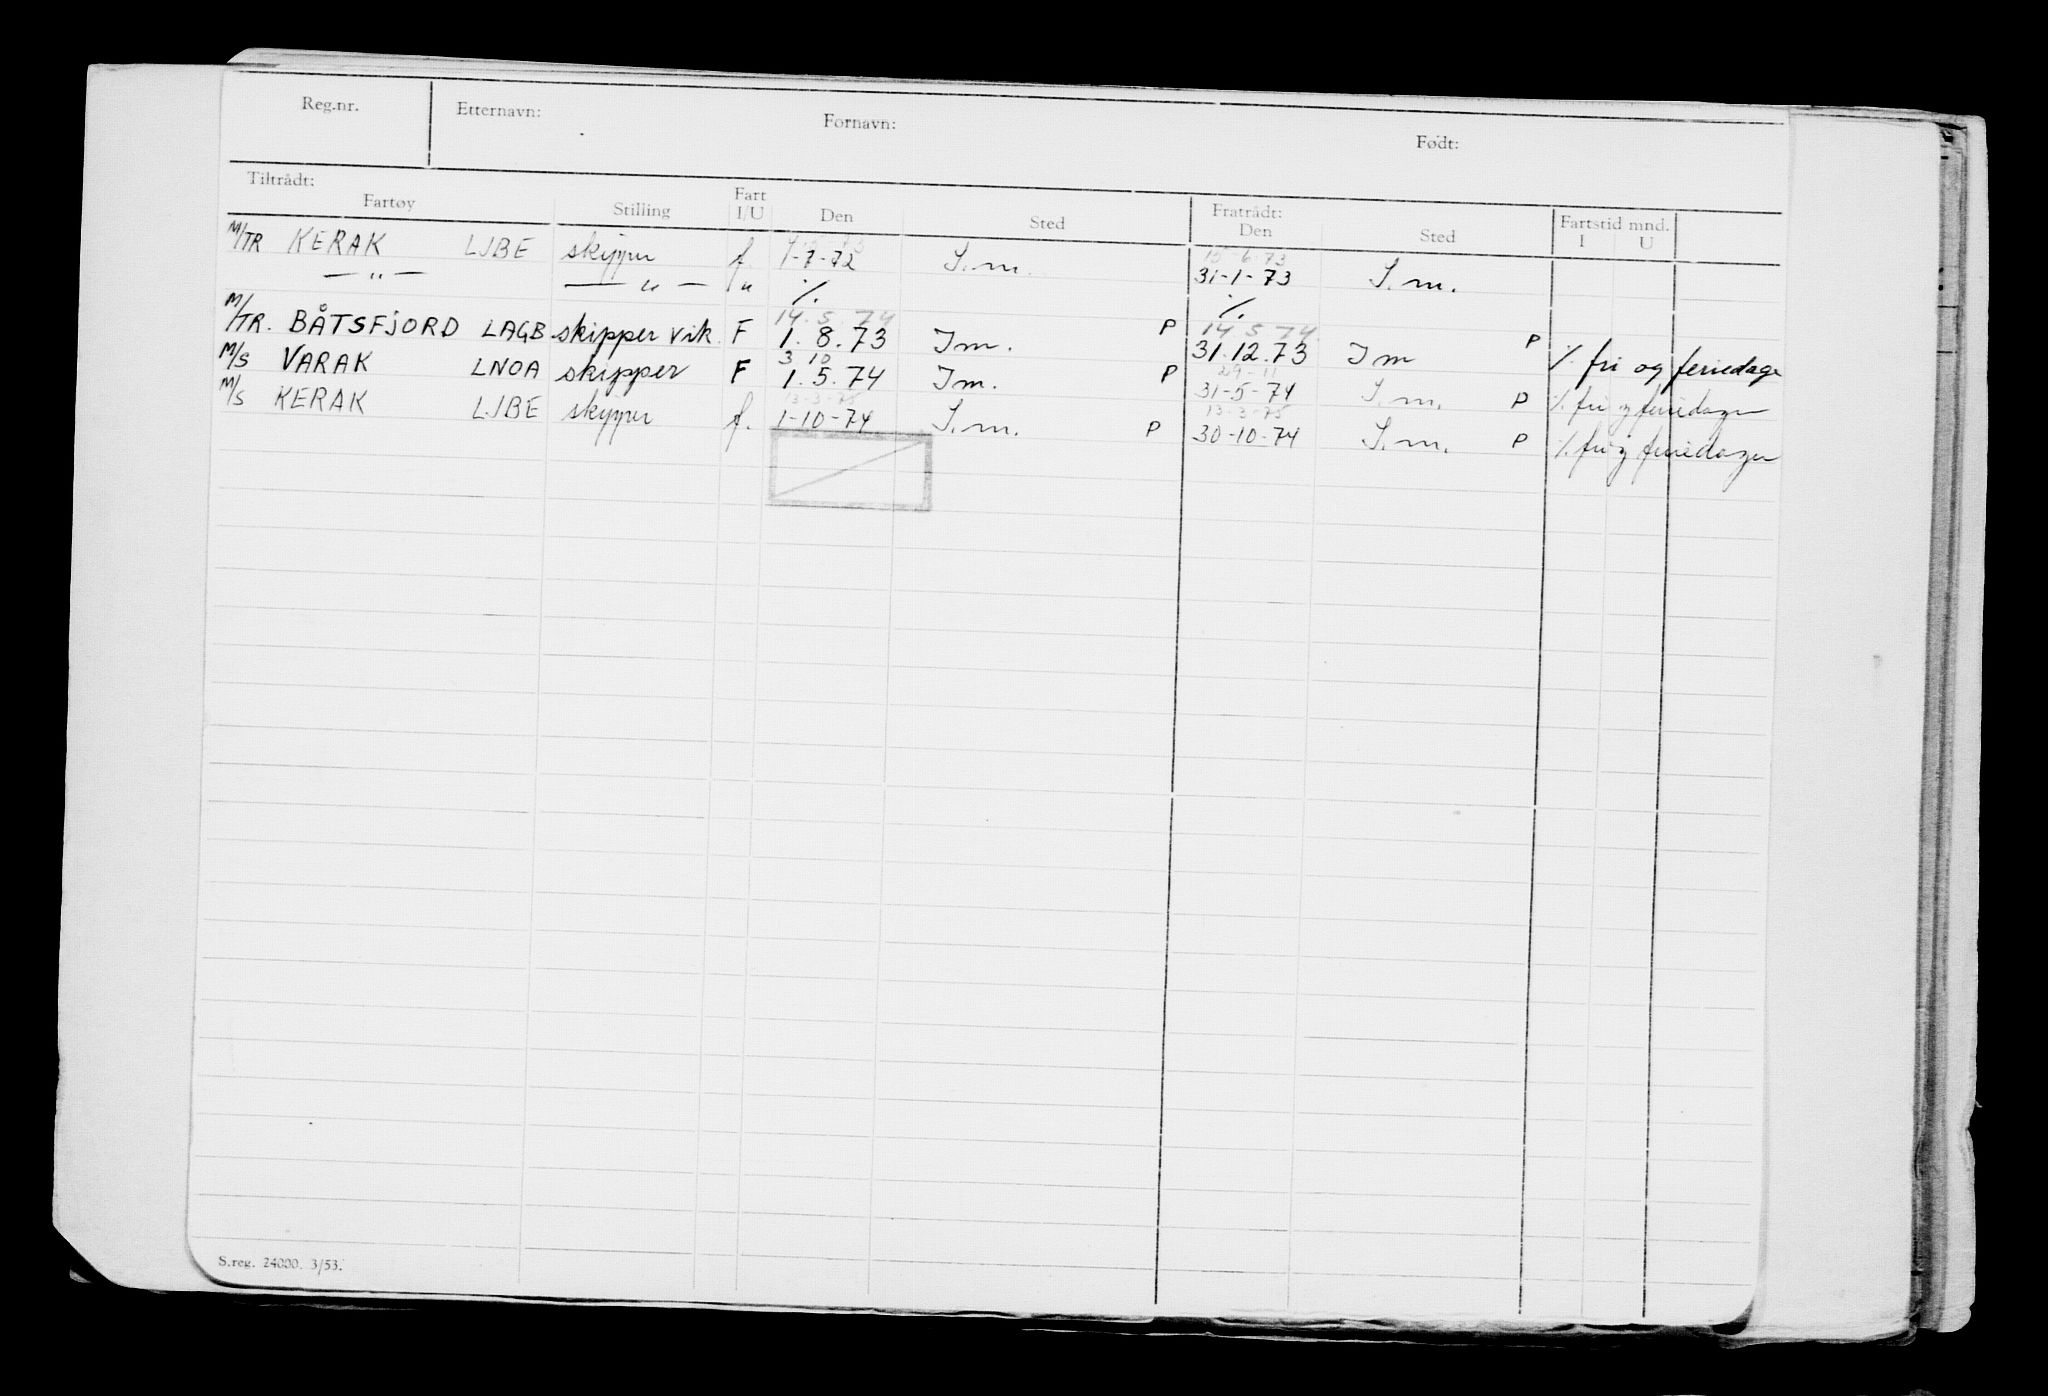 Reg.nr. Etternavn: Fornavn: Født:
Tiltrådt: Fratrådt:
Fartøy Stilling Fart I/U Den Sted Den Sted Fartstid mnd. I U
15-6-73
M/TR KERAK LJBE skipper f. 1-7-72 S.m. 31-1-73 S.m.
— " — — " — " ⁒ ⁒
14.5.74 14.5.74
M/TR. BÅTSFJORD LAGB skipper vik. F 1.8.73 Im. P 31.12.73 Im P ⁒ fri og feriedage
3 10 29-11
M/S VARAK LNOA skipper F 1.5.74 Im. P 31-5-74 S.m. P ⁒ fri og feriedager
13-3-75 13-3-75
M/S KERAK LJBE skipper f. 1-10-74 S.m. P 30-10-74 S.m. P ⁒ fri og feriedager
S.reg. 24000. 3/53.